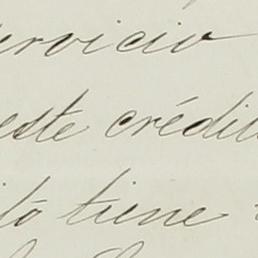 ervicio
este crédit
itó tiene